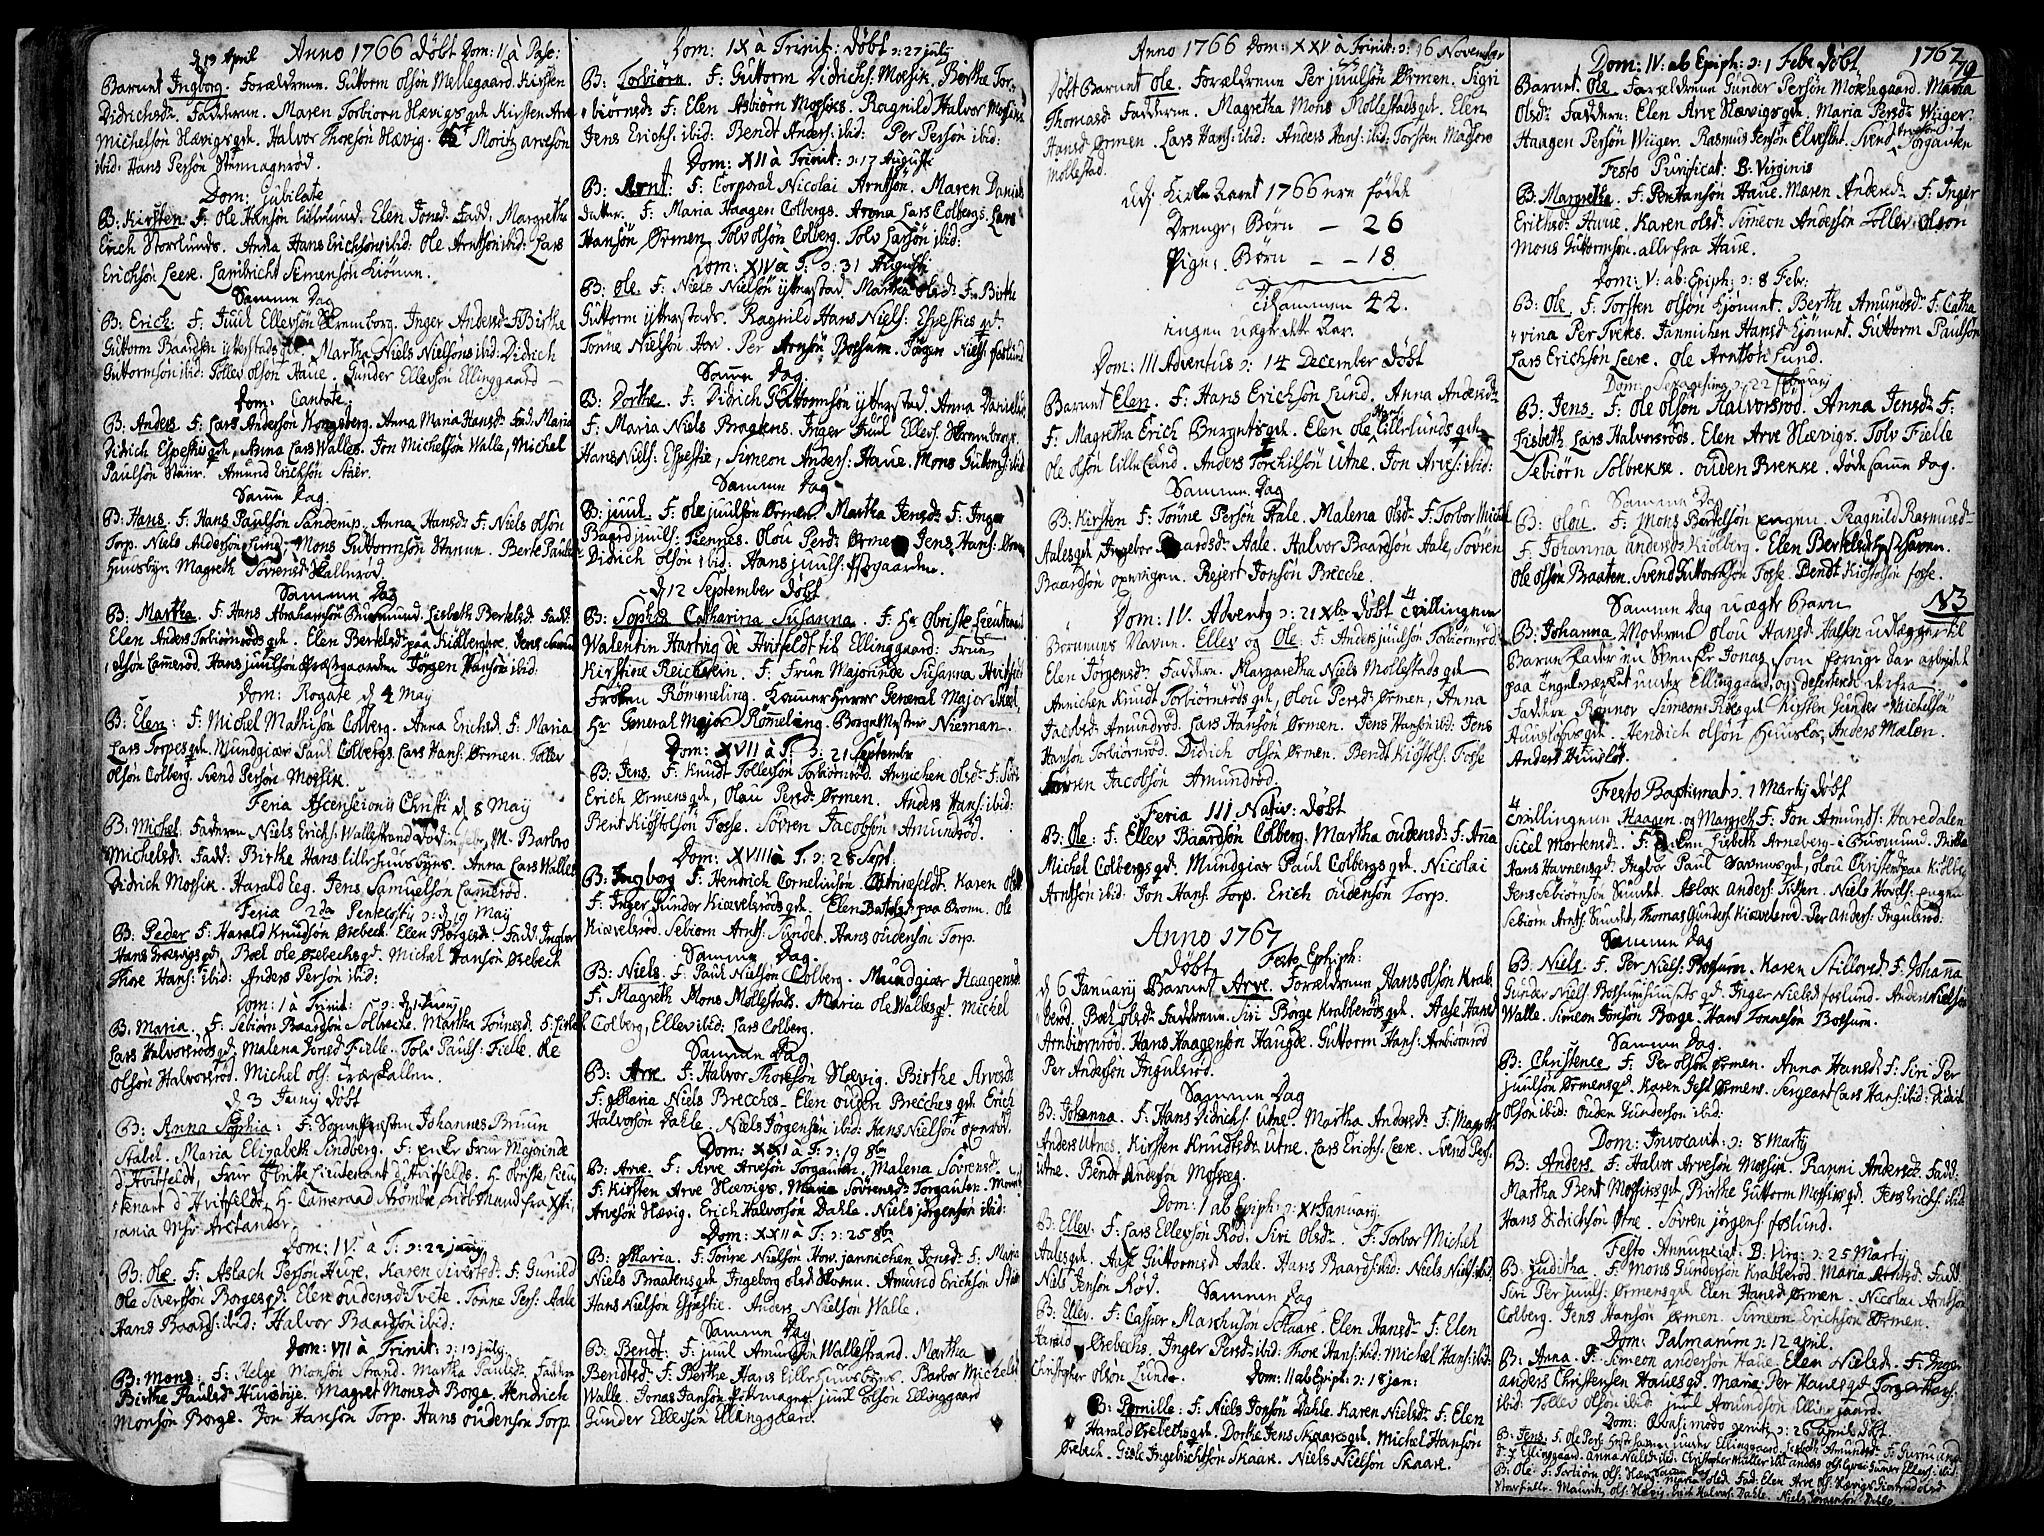 d 13 April Anno 1766 Døbt Dom: II à Pasc:
Barnet Ingborg. Forældrene. Guttorm Olsøn Møllegaard. Kirsten
Didrichsd. Fadderne. Maren Torbiørn Hævigs qd. Kirsten Arve
Michelsøn Hævigs qde. Halvor Thoresøn Hævig. Moritz Arvesøn
ibid: Hans Persøn
Dom: Jubilate
B: Kirsten. F: Ole Hansøn Lillelund. Elen Jonsd. Fadd: Margrethe
Erich Storlunds. Anna Hans Erichsøns ibid: Ole Arntsøn ibid: Lars
Erichsøn Leere. Lambricht Semensøn
Samme Dag
B: Erich. F: Juul Ellevsøn Skremborg. Inger Andersd: F: Birthe
Guttorm Baardsen Martha Niels Nielsøns ibid: Didrich
Guttormsøn ibid: Tollev Olsøn Haue. Gunder Ellevsøn Ellinggaard
Dom: Cantate
B: Anders. F: Lars Andersøn Kongsberg. Anna Maria Hansd: Fad: Maria
Didrich Espesties qde, Anna Lars Walles. Jon Michelsøn Walle, Michel
Paulsøn Amund Erichsøn
Samme Dag
B: Hans. F: Hans Paulsøn Anna Hansd: F: Niels Olsøn
Torp. Niels Andersøn Lund, Mons Guttormsøn
Huusbyn. Magreth Sørensd
Samme Dag
B: Martha. F: Hans Abrahamsøn Buesmund. Lisbeth Bertelsd: Fadd:
Elen Anders Torbiørnrøds qde. Elen Bertelsd: paa
Olsøn Camerød. Hans Juulsøn Jørgen Hansøn ibid:
Dom: Rogate d 4 May
B: Elen: F: Michel Mathisøn Colberg. Anna Erichsd. F: Maria
Lars Torpes qde. Mundgiær Paul Colbergs. Lars Hans: Ørmen. Tollev
Olsøn Colberg. Svend Persøn Mossik.
Feria Ascensionis Christi d 8 Maij
B: Michel. Faderen Niels Erichs: Wallestrand M: Barbro
Michelsd: Fadd: Birthe Hans Anna Lars Walles
Didrich Mossik. Harald Eeg. Jens Samuelsøn Camerød.
Feria 2da Pentecosty ɔ: d 19 May
B: Peder F: Harald Knudsøn Ørebech. Elen Børgesd. Fadd: Ingbor
Hans Boel Ole Ørebechs qd. Michel Hansøn Ørebech
Thore Hans: ibid: Anders Persøn ibid:
Dom: 1 à Trinit: ɔ: d 1 Juny
B: Maria. F: Sebiørn Baardsøn Solbreche. Martha Tønnesd. F: Lisbeth
Lars Halvorsrøds qd. Malena Jonsd Fielle. Tolv Pauls: Fielle. Ole
Olsøn Halvorsrød. Michel Ols:
d 3 Junij Døbt
B: Anna Sophia: F: Johannes Bruun
Stabel. Maria Elizabeth Lindberg. F: Frue Majorinde
d Hvitfeldt, Frue Obriste Lieutenant d Hvitfelds, H: Obriste Lieu
tenant d Hvitfeldt, H: Cameraad
Arctander
Dom: IV à T: ɔ: 22 Juny
B: Ole F: Aslach Persøn Karen Siversd: F: Gunild
Ole Siversøn Borges qd: Elen Oudensd: Tvete. Tønne Pers: Aale
Hans Baards: ibid: Halvor Baardsøn ibid:
Dom: VII à Trinit: ɔ: 13 July
B: Mons: F: Helge Monsøn Strand. Martha Paulsd: Fadderne
Birthe Paulsd Huusbye. Magret Monsd Borge. Hendrich
Monsøn Borge. Jon Hansøn Torp. Hans Oudensøn Torp
Dom: IX à Trinit: Døbt ɔ: 27 July
B: Torbiørn. F: Guttorm Didrichs: Mossik. Berthe Tor-
biørnsd: F: Elen Asbiørn Mossiks. Ragnild Halvor Mossiks
Jens Erichs: ibid: Bendt Anders: ibid: Per Persøn ibid:
Dom: XII à Trinit: ɔ: 17 Augusti
B: Arnt: F: Corporal Nicolai Arntsøn. Maren Daniels
datter. F: Maria Haagen Colbergs. Arona Lars Colbergs. Lars
Hansøn Ørmen. Tolv Olsøn Colberg. Tolv Larsøn ibid:
Dom: XIV à T: ɔ: 31 Augusti
B: Ole. F: Niels Nielsøn Ytterstad. Martha Olsd: F: Birthe
Guttorm Ytterstads. Ragnild Hans Niels: Espesties qd:
Tønne Nielsøn How. Per Arnsøn Bossum. Jørgen Niels: Foslund
Samme Dag
B: Dorthe. F: Didrich Guttormsøn Ytterstad. Anna Danielsd:
F: Maria Niels Braatens. Inger Juul Ellevs: Skremborgs.
Hans Niels: Espestie, Simeon Anders: Haue. Mons Guttorms: ibid
Samme Dag
B: Juul. F: Ole Juulsøn Ørmen. Martha Jensd: F: Inger
Baard Juuls: Tiennes. Olou Persd: Ørmen Jens Hans: Ørmen
Didrich Olsøn ibid: Hans Juuls:
d 12 September Døbt
B: Sophia Catharina Susanna. F: Hr Obriste Lieutenant
Walentin Hartvig de Hvitfeldt til Ellinggaard: Frue
Kirstine Reichwein. F: Frue Majorinde Susanna Hvitfeldt
Frøken Rømmeling. Kammer Herre General Major
Hr General Major Rømeling. Borge Mester Nieman.
Dom: XVII à T: ɔ: 21 Septembr
B: Jens. F: Knudt Tollevsøn Torbiørnrød. Annichen Olsd: F: Siri
Erich Ørmens qd, Olau Persd: Ørmen. Anders Hans: ibid:
Bent Kiøstolsøn Fosse. Søvren Jacobsøn Amundrød.
Dom: XVIII à T. ɔ: 28 Sept.
B: Ingborg F: Hendrich Corneliusøn Karen Ols
F: Inger Gunder Kiævelsrøds qd. Elen paa Broen. Ole
Kiævelsrød. Sebiørn Arnts: Sundet. Hans Oudensøn Torp.
Samme Dag.
B: Niels. F: Paul Nielsøn Colberg. Mundgiær Haagensd
F: Magreth Mons Møllestads. Maria Ole Walles qd: Michel
Colberg, Ellev ibid: Lars Colberg.
Samme Dag
B: Arve. F: Halvor Thoresøn Hævig. Birthe Arvesd
F: Maria Niels Brecches. Elen Ouden Brecches qd. Erich
Halvorsøn Dahle. Niels Jørgensøn ibid: Hans Nielsøn
Dom: XXI à T: ɔ: 19 8br
B: Arve. F: Arve Arvesøn Torgauten. Malena Søvrensd.
F: Kirsten Arve Hævigs. Maria Søvrensd: Torgauten.
Arvesøn Hævig. Erich Halvorsøn Dahle. Niels Jørgensøn ibid:
Dom: XXII à T: ɔ: 25 8br
B: Maria. F: Tønne Nielsøn How. Jannichen Jonsd: F: Maria
Niels Braatens qd. Ingeborg Olsd Amund Erichsøn
Hans Nielsøn Espestie. Anders Nielsøn Walle.
Samme Dag
B: Bendt: F: Juul Amunsøn Wallestrand. Martha
Bendtsd: F: Berthe Hans Barbor Michelsd
Walle. Jonas Jansøn Juul Olsøn Ellinggaard
Gunder Ellevsøn Ellinggaard.
Anno 1766 Dom: XXV à Trinit: ɔ: 16 November
Døbt Barnet Ole. Forældrene Per Juulsøn Ørmen. Sigri
Thomasd: Fadderne. Magretha Mons Møllestads qd. Elen
Hansd Ørmen. Lars Hans: ibid: Anders Hans: ibid: Torsten Madsen
Møllestad.
udj Kirke Aaret 1766 ere fødde
Drenge, Børn - 26
Pige, Børn - - 18
Tilsammen 44.
ingen uægte dette Aar.
Dom: III Adventus ɔ: 14 December Døbt
Barnet Elen. F: Hans Erichsøn Lund. Anna Andersd:
F: Magretha Erich qd. Elen Ole Hans: Lillelunds qd.
Ole Olsøn Lille Lund. Anders Torchilsøn Utne. Jon Arves: ibid:
Samme Dag
B: Kirsten F: Tønne Persøn Aale. Malena Olsd: F: Torbor Michel
Aales qd. Ingebor Baardsd: Aale. Halvor Baardsøn Aale, Søvren
Baardsøn Rejert Jonsøn Brecche.
Dom: IV. Adventq ɔ: 21 Xbr Døbt 4 Tvillingerne
Børnenes Navne. Ellev og Ole: F: Anders Juulsøn Torbiørnrød
Elen Jørgensd: Fadderne. Margaretha Niels Møllestads qd
Annichen Knudt Torbiørnrøds qd, Olou Persd: Ørmen, Anna
Jacobsd: Amundrød. Lars Hansøn Ørmen. Jens Hans: ibid: Jens
Hansøn Torbiørnrød. Didrich Olsøn Ørmen. Bendt Kiøstols: Fosse
Søvren Jacobsøn Amundrød.
Feria III Nativ: Døbt
B: Ole: F: Ellev Baardsøn Colberg. Martha Oudensd: F: Anna
Michel Colbergs qd. Mundgiær Paul Colbergs qd. Nicolai
Arntsøn ibid: Jon Hans: Torp. Erich Oudensøn Torp.
Anno 1767
Døbt Festo Ephiph:
d 6 Januarij Barnet Arve. Forældrene Hans Olsøn Krab-
berød. Boel Olsd: Fadderne. Siri Børge Krabberøds qd. Aase Hansd
Arnbiørnrød. Hans Haagensøn Haugde. Guttorm Hans: Arnbiørnrød
Per Andersøn Ingulsrød.
Samme Dag
B: Johanna. F: Hans Didrichs: Utne. Martha Andersd: F: Magreth
Anders Utnes. Kirsten Knudtsd: Utne. Lars Erichs: Leere. Svend Pers:
Utne. Bendt Andersøn Mosseeg.
Dom: 1 ab Epiph: ɔ: XI January.
B: Ellev. F: Lars Ellevsøn Rød. Siri Olsd: F: Torbor Michel
Aales qd. Aase Guttormsd: Aale. Hans Baards: ibid: Niels Niels: ibid:
Niels Jensøn Rød. Samme Dag
B: Ellev. F: Casper Marchusøn Skaare. Elen Hansd: F: Elen
Harald Ørebechs. Inger Persd: ibid: Thore Hans: ibid: Michel Hans: ibid:
Christopher Olsøn Lunde. Dom: II ab Epiph: ɔ: 18 Jan:
B: Pernille: F: Niels Jonsøn Dahle. Karen Nielsd: F: Elen
Harald Ørebechs qd. Dorthe Jens Skaares qd. Michel Hansøn
Ørebech. Gisle Ingebrichtsøn Skaar. Niels Nielsøn Skaare.
1767 79
Dom: IV: ab Epiph: ɔ: 1 Febr Døbt
Barnet Ole. Forældrene Gunder Persøn Møklegaard. Maria
Olsd: Fadderne: Elen Arve Hævigs qde. Maria Persd: Wiiger.
Haagen Persøn Wiiger. Rasmus Persøn Svend Torgauten
Festo Purificat: B: Virginis
B: Margretha. F: Per Hansøn Haue. Maren Andersd: F: Inger
Erichsd: Haue. Karen Olsd: Simeon Andersøn Tollev Olsøn
Mons Guttormsøn. alle fra Haue.
Dom: V: ab: Epiph: ɔ: 8 Febr:
B: Ole: F: Torsten Olsøn Berthe Amundsd: F: Catha
rina Per Tviks. Jannichen Hansd: Guttorm Paulsøn
Lars Erichsøn Leere. Ole Arntsøn Lund.
Dom: Sexagesima ɔ: 22 Februarij
B: Jens. F: Ole Olsøn Halvorsrød. Anna Jensd: F:
Lisbeth Lars Halvorsrøds. Elen Arve Hævigs. Tolv Fielle
Sebiørn Solbrekke. Ouden Brekke. Døde samme Dag.
Samme Dag
B: Olou. F: Mons Bertelsøn Engen. Ragnild Rasmusd
F: Johanna Anders Kiølberg. Elen Bertelsd:
Ole Olsøn Braaten. Svend Guttormsøn Fosse. Bendt Kiøstolsøn Fosse.
Samme Dag uægte Barn N3
B: Johanna. Moderen Olou Hansd: Halsen udlægger til
Barne Fader en Svensk Jonas, som forrige Aar arbeidet
paa Engelværket under Ellinggaard, og deserterede derfra
Fadderne Rønnov Simeon qd. Kirsten Gunder Michelsøn
Huusløss qd. Hendrich Olsøn Huusløs, Anders Mælen.
Anders Huusløs.
Festo Baptismat: ɔ: 1 Martij Døbt
4 Tvillingerne Haagen og Magreth F: Jon Amunds: Haredalen
Sicel Mortensd: F: Lisbeth Arneberg Buesmund. Birthe
Hans Havnens qd. Ingbor Paul qd, Olou Christens paa Kiølberg
Jens Sebiørnsøn Sundet. Aslak Anders: Niels
Sebiørn Arnts: Sundet, Thomas Gunders: Kiævelsrød. Per Anders: Ingulsrød:
Samme Dag
B: Niels. F: Per Niels: Bossum. Karen F: Johanna
Gunder Niels: qd. Inger Nielsd Foslund. Anders Nielsøn
Walle. Simeon Jonsøn Borge. Hans Tønnesøn Bossum.
Samme Dag.
B: Christence F: Per Olsøn Ørmen. Anna Hansd: F: Siri Per
Juulsøn Ørmens qd. Karen Jensd Ørmens. Sergeant Lars Hans: ibid: Didrich
Olsøn ibid: Ouden Gundersøn ibid:
Dom: Invocavit: ɔ: 8 Marty
B: Anders. F: Halvor Arvesøn Mossik. Ranni Andersd: Fadd:
Martha Bent Mossiks qd. Birthe Guttorm Mossiks qd. Jens Erichs: ibid
Hans Didrichsøn Søvren Jørgens: Foslund.
Festo Annunciat: B: Virg: ɔ: 25 Martij
B: Juditha. F: Mons Gundersøn Krabberød. Maria Arntsd: Fadd.
Siri Per Juuls: Ørmens qd. Elen Hansd Ørmen. Nicolai Arntsøn
Colberg. Jens Hansøn Ørmen. Simeon Erichsøn Ørmen.
Dom: Palmarum ɔ: 12 April.
B: Anna. F: Simeon Andersøn Haue. Elen Nielsd. F: Inger
Anders Christensen Haues qd. Maria Per Haues qd. Torger Hans:
ibid: Tollev Olsøn ibid: Juul Amundsøn Ellinggaard.
Dom: Qvasi modo geniti ɔ: 26 April Døbt
B: Jens. F: Ole Pers: under Ellinggaard. Lisbeth Amundsd: F: Gurinand
Ellinggaard. Anna Nielsd: ibid: Christopher Müller ibid: Anders Ols: Gunder Ellevs: ibid:
B: Ole: F: Torbiørn Ols: Hævig Samme Dag Maria Olsd. Fad: Elen Arve Ols: Hævigs
Storfielle. Maurits Ols: Hævig. Erich Halvors: Dahle. Niels Jørgensøn Dahle